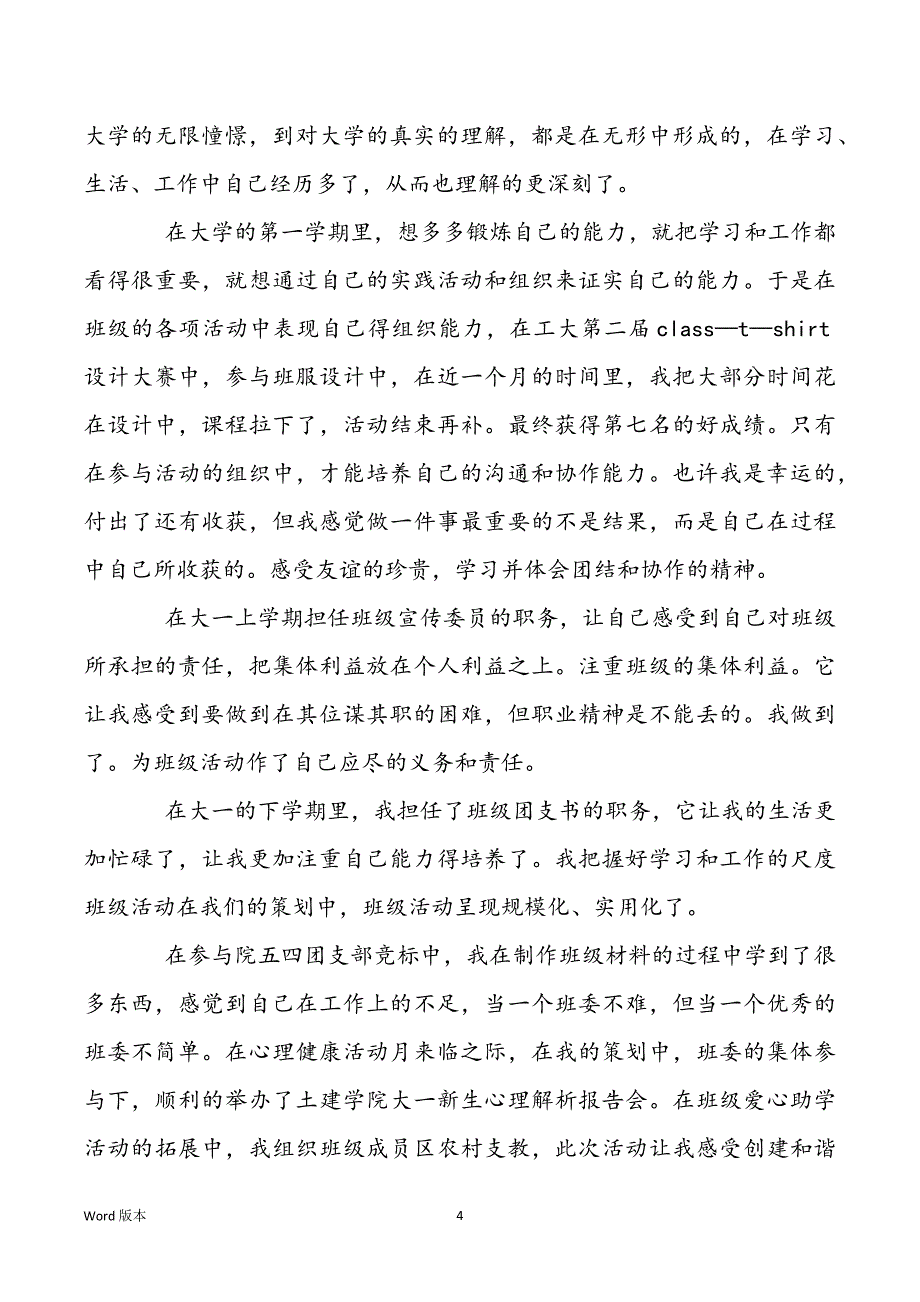 大学的无限憧憬，到对大学的真实的理解，都是在无形中形成的，在学习、
生活、工作中自己经历多了，从而也理解的更深刻了。
在大学的第一学期里，想多多锻炼自己的能力，就把学习和工作都
看得很重要，就想通过自己的实践活动和组织来证实自己的能力。于是在
班级的各项活动中表现自己得组织能力，在工大第二届 class—t—shirt
设计大赛中，参与班服设计中，在近一个月的时间里，我把大部分时间花
在设计中，课程拉下了，活动结束再补。最终获得第七名的好成绩。只有
在参与活动的组织中，才能培养自己的沟通和协作能力。也许我是幸运的，
付出了还有收获，但我感觉做一件事最重要的不是结果，而是自己在过程
中自己所收获的。感受友谊的珍贵，学习并体会团结和协作的精神。
在大一上学期担任班级宣传委员的职务，让自己感受到自己对班级
所承担的责任，把集体利益放在个人利益之上。注重班级的集体利益。它
让我感受到要做到在其位谋其职的困难，但职业精神是不能丢的。我做到
了。为班级活动作了自己应尽的义务和责任。
在大一的下学期里，我担任了班级团支书的职务，它让我的生活更
加忙碌了，让我更加注重自己能力得培养了。我把握好学习和工作的尺度
班级活动在我们的策划中，班级活动呈现规模化、实用化了。
在参与院五四团支部竞标中，我在制作班级材料的过程中学到了很
多东西，感觉到自己在工作上的不足，当一个班委不难，但当一个优秀的
班委不简单。在心理健康活动月来临之际，在我的策划中，班委的集体参
与下，顺利的举办了土建学院大一新生心理解析报告会。在班级爱心助学
活动的拓展中，我组织班级成员区农村支教，此次活动让我感受创建和谐
Word 版本
4